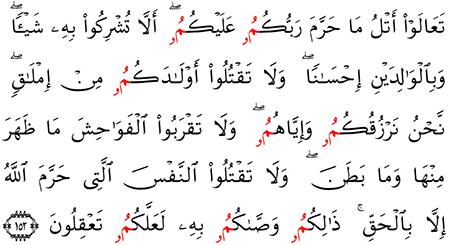 تَعَالَوْاْ أَتْلُ مَا حَرَّمَ رَبُّكُمُۥ عَلَيْكُمُۥٓۖ أَلَّا تُشْرِكُواْ بِهِۦ شَيْـًٔاۖ
وَبِالْوَٰلِدَيْنِ إِحْسَٰنٗاۖ وَلَا تَقْتُلُوٓاْ أَوْلَٰدَكُمُۥ مِنْ إِمْلَٰقٖۖ
نَّحْنُ نَرْزُقُكُمُۥ وَإِيَّاهُمُۥۖ وَلَا تَقْرَبُواْ الْفَوَٰحِشَ مَا ظَهَرَ
مِنْهَا وَمَا بَطَنَۖ وَلَا تَقْتُلُواْ النَّفْسَ الَّتِي حَرَّمَ اللَّهُ
إِلَّا بِالْحَقِّۚ ذَٰلِكُمُۥ وَصَّىٰكُمُۥ بِهِۦ لَعَلَّكُمُۥ تَعْقِلُونَ ١٥٢